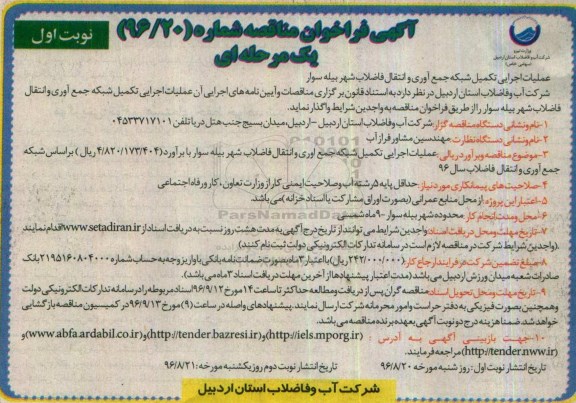 وزارت نیرو
شرکت آب و فاضلاب استان اردبیل
(سهامی خاص)
آگهی فراخوان مناقصه شماره (۹۶/۲۰)
یک مرحله ای
نوبت اول
عملیات اجرایی تکمیل شبکه جمع آوری و انتقال فاضلاب شهر بیله سوار
شرکت آب وفاضلاب استان اردبیل در نظر دارد به استناد قانون برگزاری مناقصات و آیین نامه های اجرایی آن عملیات اجرایی تکمیل شبکه جمع آوری و انتقال
فاضلاب شهر بیله سوار را از طریق فراخوان مناقصه به واجدین شرایط واگذار نماید.
۱-نام ونشانی دستگاه مناقصه گزار:شرکت آب وفاضلاب استان اردبیل -اردبیل،میدان بسیج جنب هتل دریا تلفن ۰۴۵۳۳۷۱۷۱۰۱
۲-نام ونشانی دستگاه نظارت: مهندسین مشاور فراز آب
۳-موضوع مناقصه وبرآورد ریالی:عملیات اجرایی تکمیل شبکه جمع آوری و انتقال فاضلاب شهر بیله سوار با برآورد (۴/۸۲۰/۱۷۳/۴۰۴ ریال ) براساس شبکه
جمع آوری و انتقال فاضلاب سال ۹۶
۴-صلاحیت های پیمانکاری مورد نیاز: حداقل پایه ۵ رشته آب وصلاحیت ایمنی کار از وزارت تعاون ، کار و رفاه اجتماعی
۵-اعتبار این پروژه از محل منابع عمرانی (بصورت اوراق مشارکت یا اسناد خزانه )می باشد.
۶-محل ومدت انجام کار محدوده شهر بیله سوار -۹ماه شمسی
۷-تاریخ مهلت ومحل دریافت اسناد:واجدین شرایط می توانند از تاریخ درج آگهی به مدت هشت روز نسبت به دریافت اسناد از www.setadiran.ir اقدام نمایند
(واجدین شرایط شرکت در مناقصه لازم است در سامانه تدارکات الکترونیکی دولت ثبت نام کنند)
۸-مبلغ تضمین شرکت در فرایند ارجاع کار(۲۴۲/۰۰۰/۰۰۰ ریال) با اعتبار ۳ماه بصورت ضمانت نامه بانکی یا واریز وجه به حساب شماره ۲۱۹۵۱۶۰۸۰۴۰۰۰ بانک
صادرات شعبه میدان ورزش اردبیل می باشد (مدت اعتبار پیشنهادها از آخرین مهلت دریافت اسناد ۳ماه می باشد).
۹-تاریخ مهلت ومحل تحویل اسناد:مناقصه گران پس از دریافت ومطالعه حداکثر تا ساعت ۱۴ مورخ ۹۶/۹/۱۲اسناد مربوطه را در سامانه تدارکات الکترونیکی دولت
وهمچنین بصورت فیزیکی به دفتر حراست و امور محرمانه شرکت ارسال نمایند .پیشنهادهای واصله در ساعت (۹)مورخ ۹۶/۹/۱۳ در کمیسیون مناقصه بازگشایی
خواهد شد.ضمنا هزینه درج دو نوبت آگهی بعهده برنده مناقصه می باشد.
۱۰-جهت بازبینی آگهی به آدرس : (http://iels.mporg.ir)و(http://tender.bazresi.ir)و(www.abfa.ardabil.co.ir)و
(http://tender.nww.ir)مراجعه فرمایند.
تاریخ انتشار نوبت اول : روز شنبه مورخه ۹۶/۸/۲۰
تاریخ انتشار نوبت دوم روز یکشنبه مورخه : ۹۶/۸/۲۱
شرکت آب وفاضلاب استان اردبیل